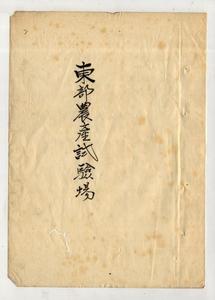 東部農產試驗場